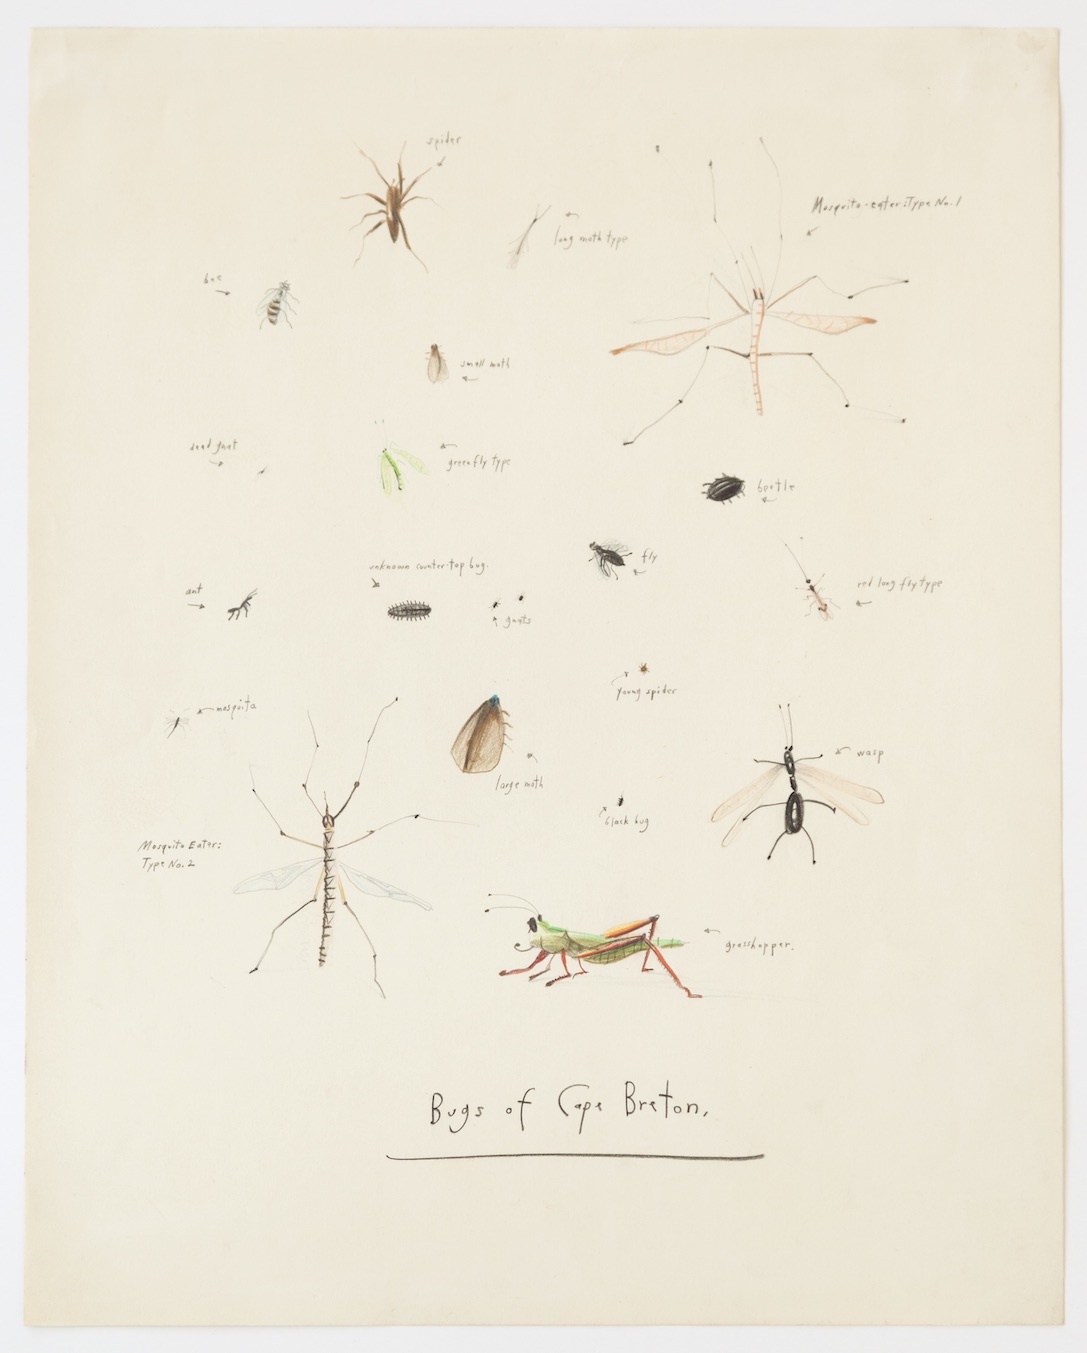 spider
Mosquito-eater: Type No. 1
long moth type
bee
small moth
dead gnat
greenfly type
beetle
fly
unknown counter-top bug.
red long fly type
ant
gnats
young spider
mosquito
wasp
large moth
black bug
Mosquito Eater:
Type No. 2
grasshopper.
Bugs of Cape Breton.